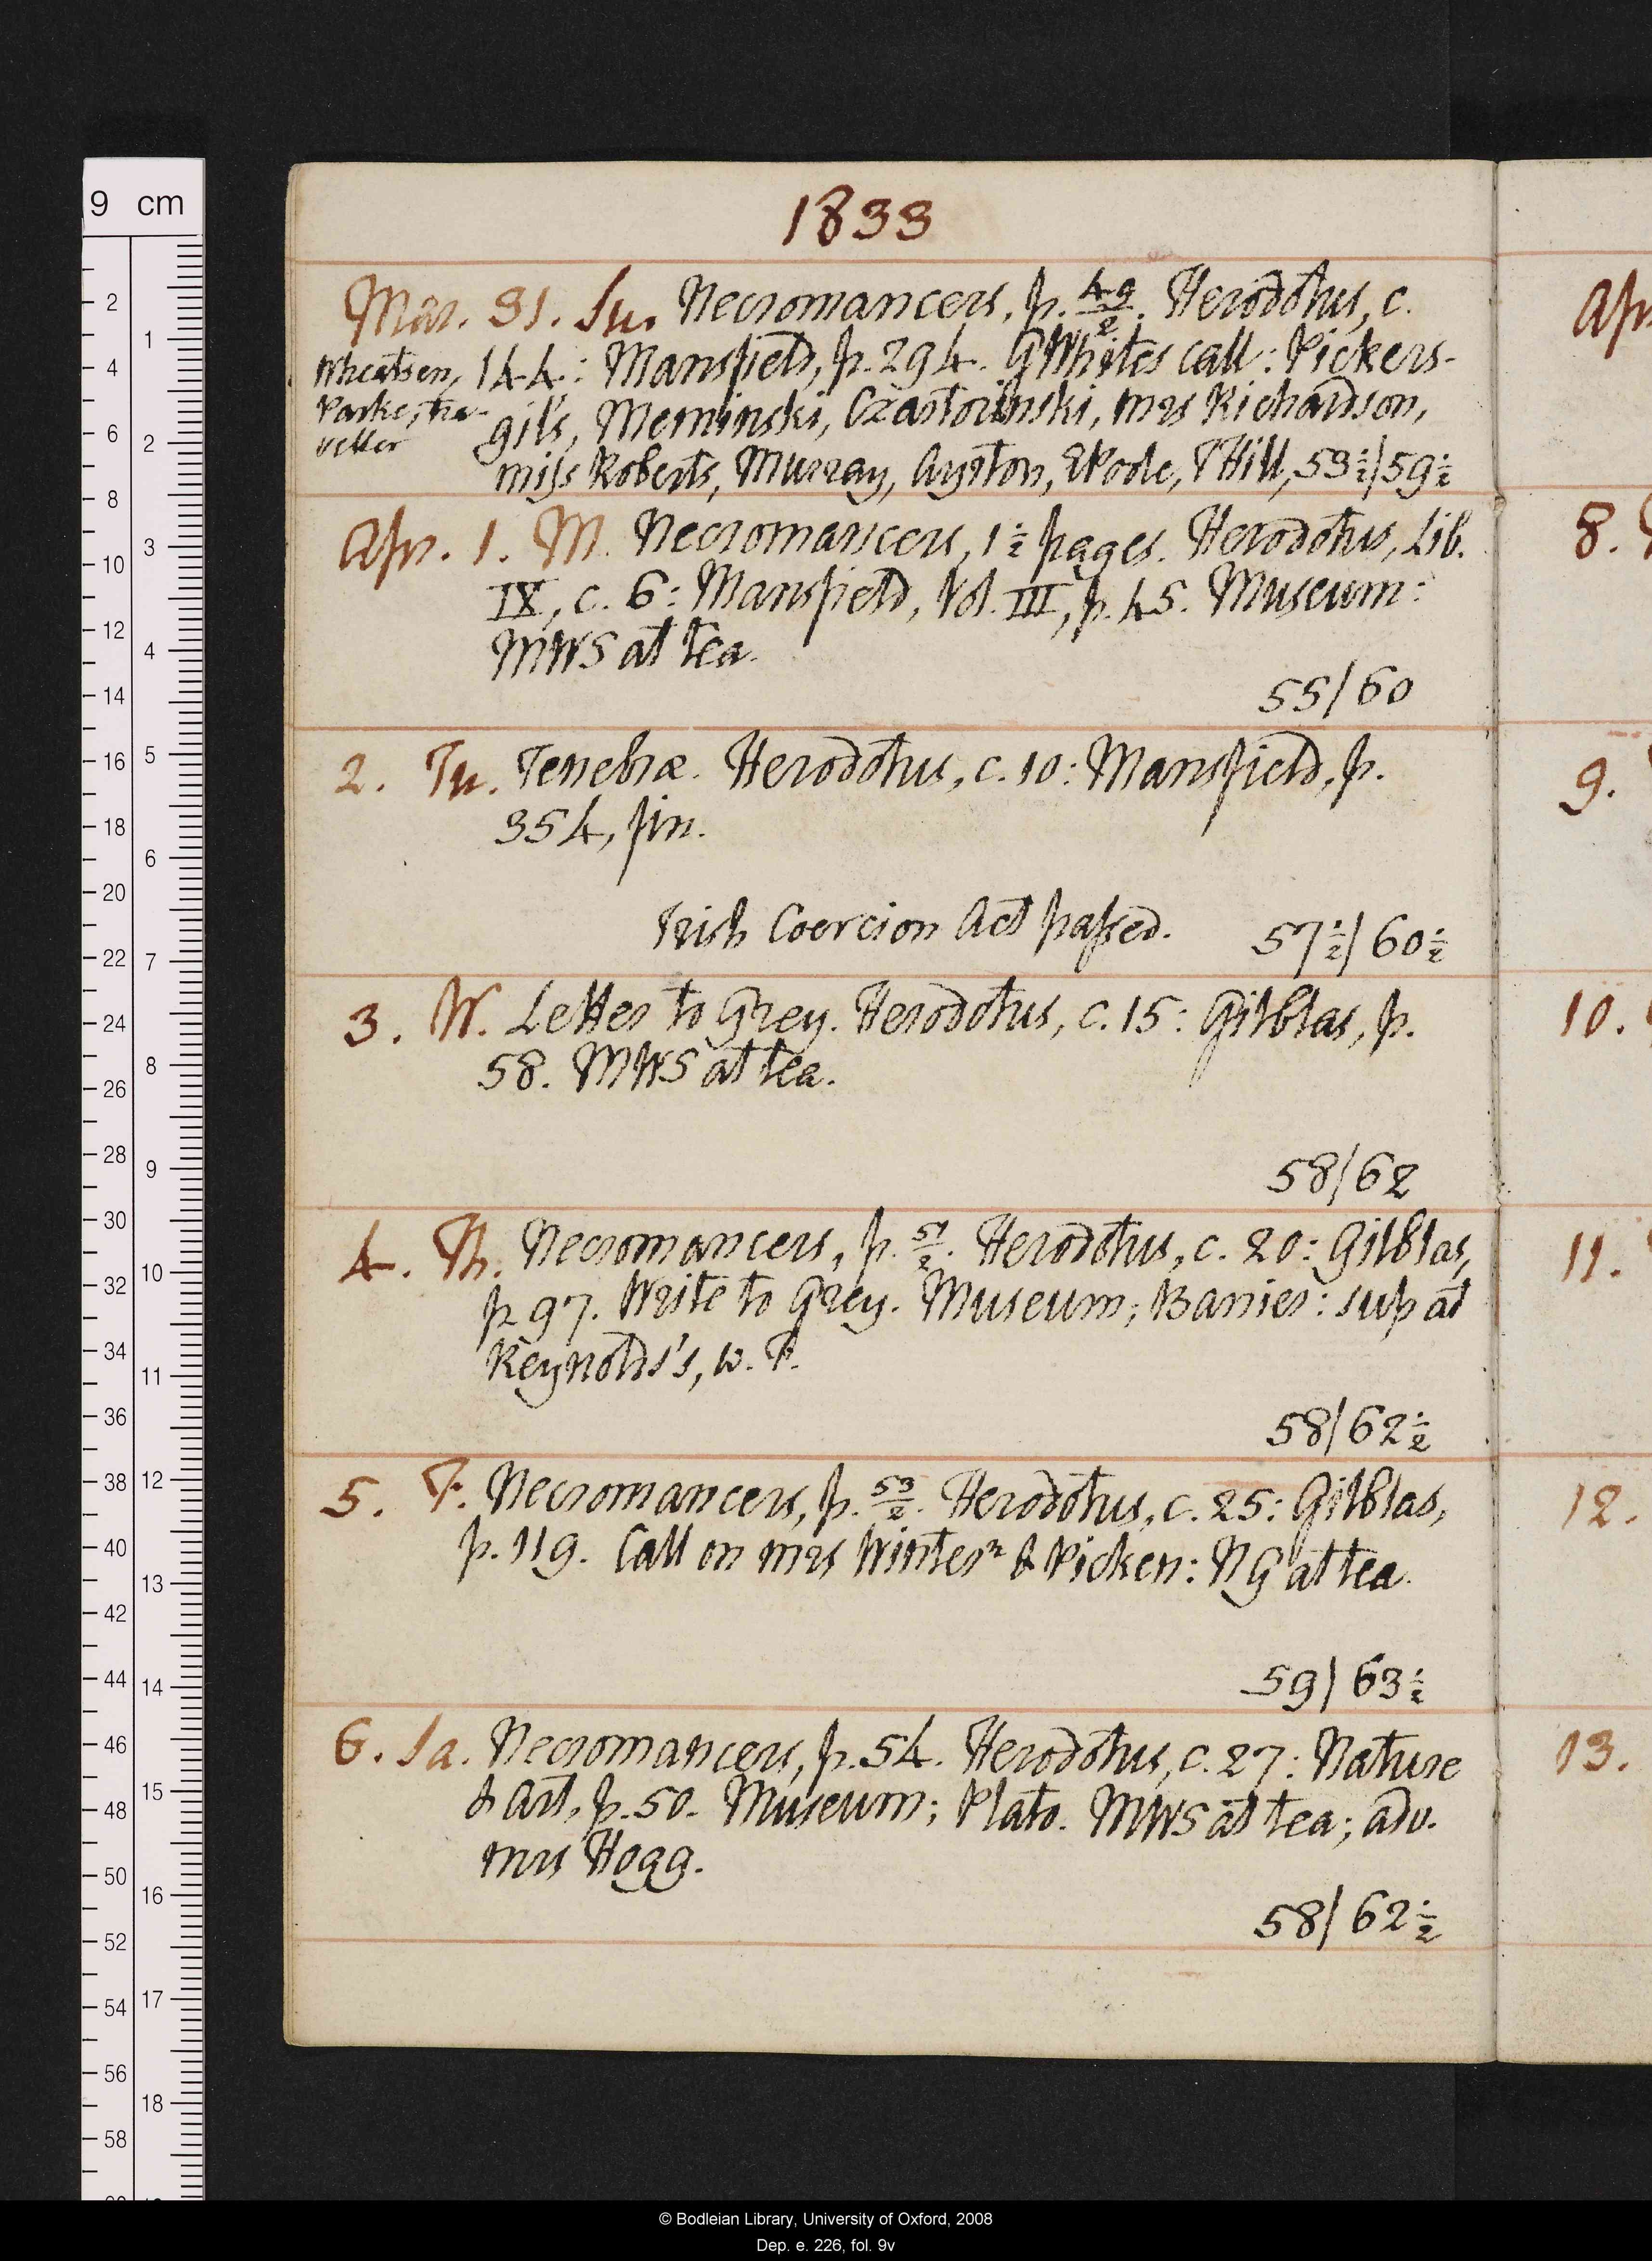 1833
Mar. 31. Su. Necromancers, p. 49/2. Herodotus, c.
144: Mansfield, p. 294. GWhites call: Pickers-
gil's, Meminski, Czastorinski, mrs Richardson,
miss Roberts, Murray, Ayrton, EPoole, THill, 53½/59½
Wheatsen,
Parke, tra-
veller
Apr. 1. M. Necromancers, 1½ pages. Herodotus, Lib.
IX, c. 6: Mansfield, Vol. III, p. 45. Museum:
MWS at tea.
55/60
2. Tu. Tenebræ. Herodotus, c. 10: Mansfield, p.
354, fin.
Irish Coercion Act passed. 57½/60½
3. W. Letter to Grey. Herodotus, c. 15: Gilblas, p.
58. MWS at tea.
58/62
4. Th. Necromancers, p. 51/2. Herodotus, c. 20: Gilblas,
p 97. Write to Grey. Museum; Banier: sup at
Reynolds's, w. F.
58/62½
5. F. Necromancers, p. 53/2. Herodotus, c. 25: Gilblas,
p. 119. Call on mrs Winter⁠ⁿ & Picken: NG at tea.
59/63½
6. Sa. Necromancers, p. 54. Herodotus, c. 27: Nature
& Art, p. 50. Museum; Plato. MWS at tea; adv.
mrs Hogg.
58/62½
Apr
8.
9.
10.
11.
12.
13.
9 cm
2
4
6
8
10
12
14
16
18
20
22
24
26
28
30
32
34
36
38
40
42
44
46
48
50
52
54
56
58
1
2
3
4
5
6
7
8
9
10
11
12
13
14
15
16
17
18
© Bodleian Library, University of Oxford, 2008
Dep. e. 226, fol. 9v